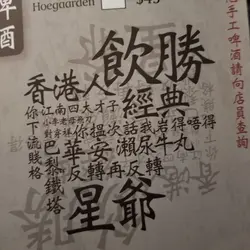 Hoegaarden
$45
啤酒
手工啤酒請向店員查詢
飲勝
香港人
經典
江南四大才子
對穿腸
你搵次話我若得唔得
你下流賤格
華安
瀨尿牛丸
巴黎鐵塔
反轉再反轉
星爺